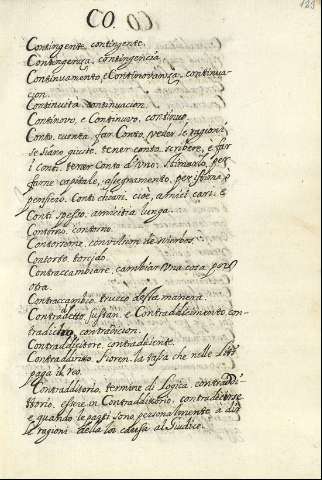 123
CO.
Contingente, contingente.
Contingenza, contingencia.
Continuamento, e Continovanza, continua-
cion.
Continuita continuacion.
Continovo, e Continuo, continuo.
Conto, cuenta, far Conto, veder le ragioni
se siano giuste, tener conto, scrivere, e far
i conti, tener Conto d'uno, stimarlo, per
farne capitale, assegnamento, per stima, e
pensiero. Conti chiari, cioè, amici cari, e
Conti spesso, amicitia lunga.
Contorno, contorno.
Contorsione, de nierbos.
Contorto, torcido.
Contraccambiare, cambiar una cosa por
otra.
Contraccambio, trueco desta manera.
Contradetto sustan. e Contraddicimento con-
tradicho, contradicion.
Contraddicitore, contradiciente.
Contraddiritto, Fioren. la tassa che nelle
paga il reo.
Contradditorio, termine di Logica, contradi-
ttorio, essere in Contradditorio, contradecirse
e quando le parti sono personalmente a dir
le ragioni della lor causa al Giudice.